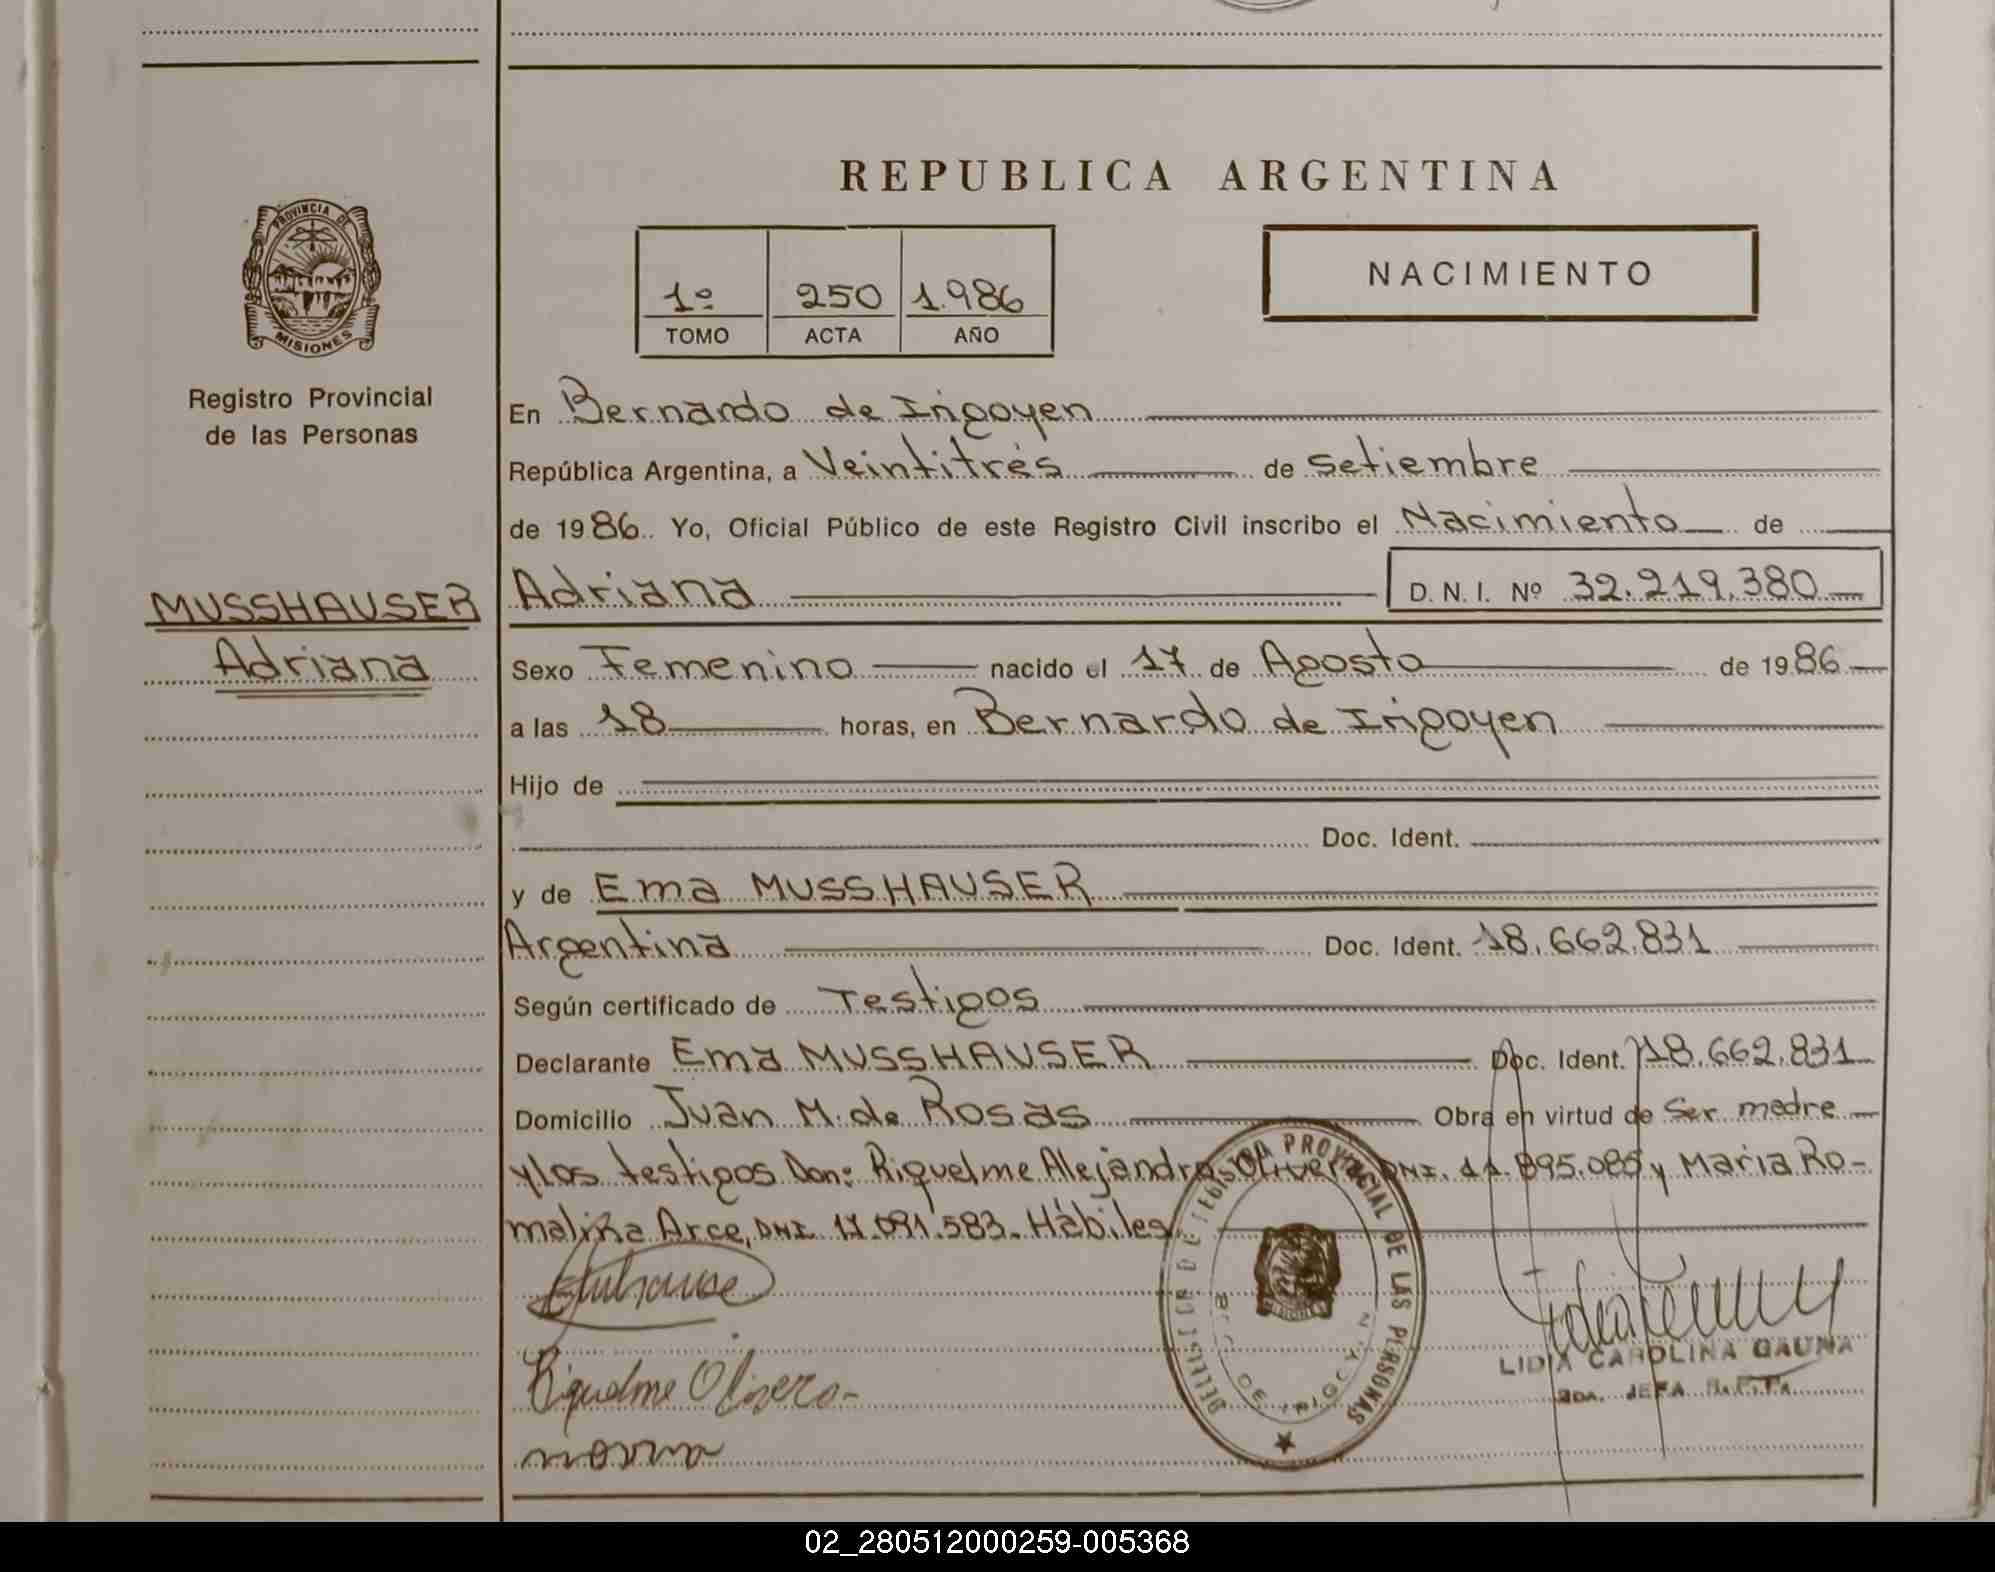 REPUBLICA ARGENTINA
PROVINCIA DE MISIONES
Registro Provincial
de las Personas
1º 250 1.986
TOMO ACTA AÑO
NACIMIENTO
MUSSHAUSER
Adriana
En Bernardo de Irigoyen
República Argentina, a Veintitrés de Setiembre
de 1986. Yo, Oficial Público de este Registro Civil inscribo el Nacimiento de
Adriana D. N. I. Nº 32.219.380
Sexo Femenino nacido el 17 de Agosto de 1986
a las 18 horas, en Bernardo de Irigoyen
Hijo de
Doc. Ident.
y de Ema MUSSHAUSER
Argentina Doc. Ident. 18.662.831
Según certificado de Testigos
Declarante Ema MUSSHAUSER Doc. Ident. 18.662.831
Domicilio Juan M. de Rosas Obra en virtud de Ser madre
y los testigos Don: Riquelme Alejandro Olivera DNI. 11.895.085 y Maria Ro-
malina Arce, DNI 17.091.583. Hábiles
Riquelme Olivera-
REGISTRO PROVINCIAL DE LAS PERSONAS
LIDIA CAROLINA GAUNA
2DA. JEFA
02_280512000259-005368